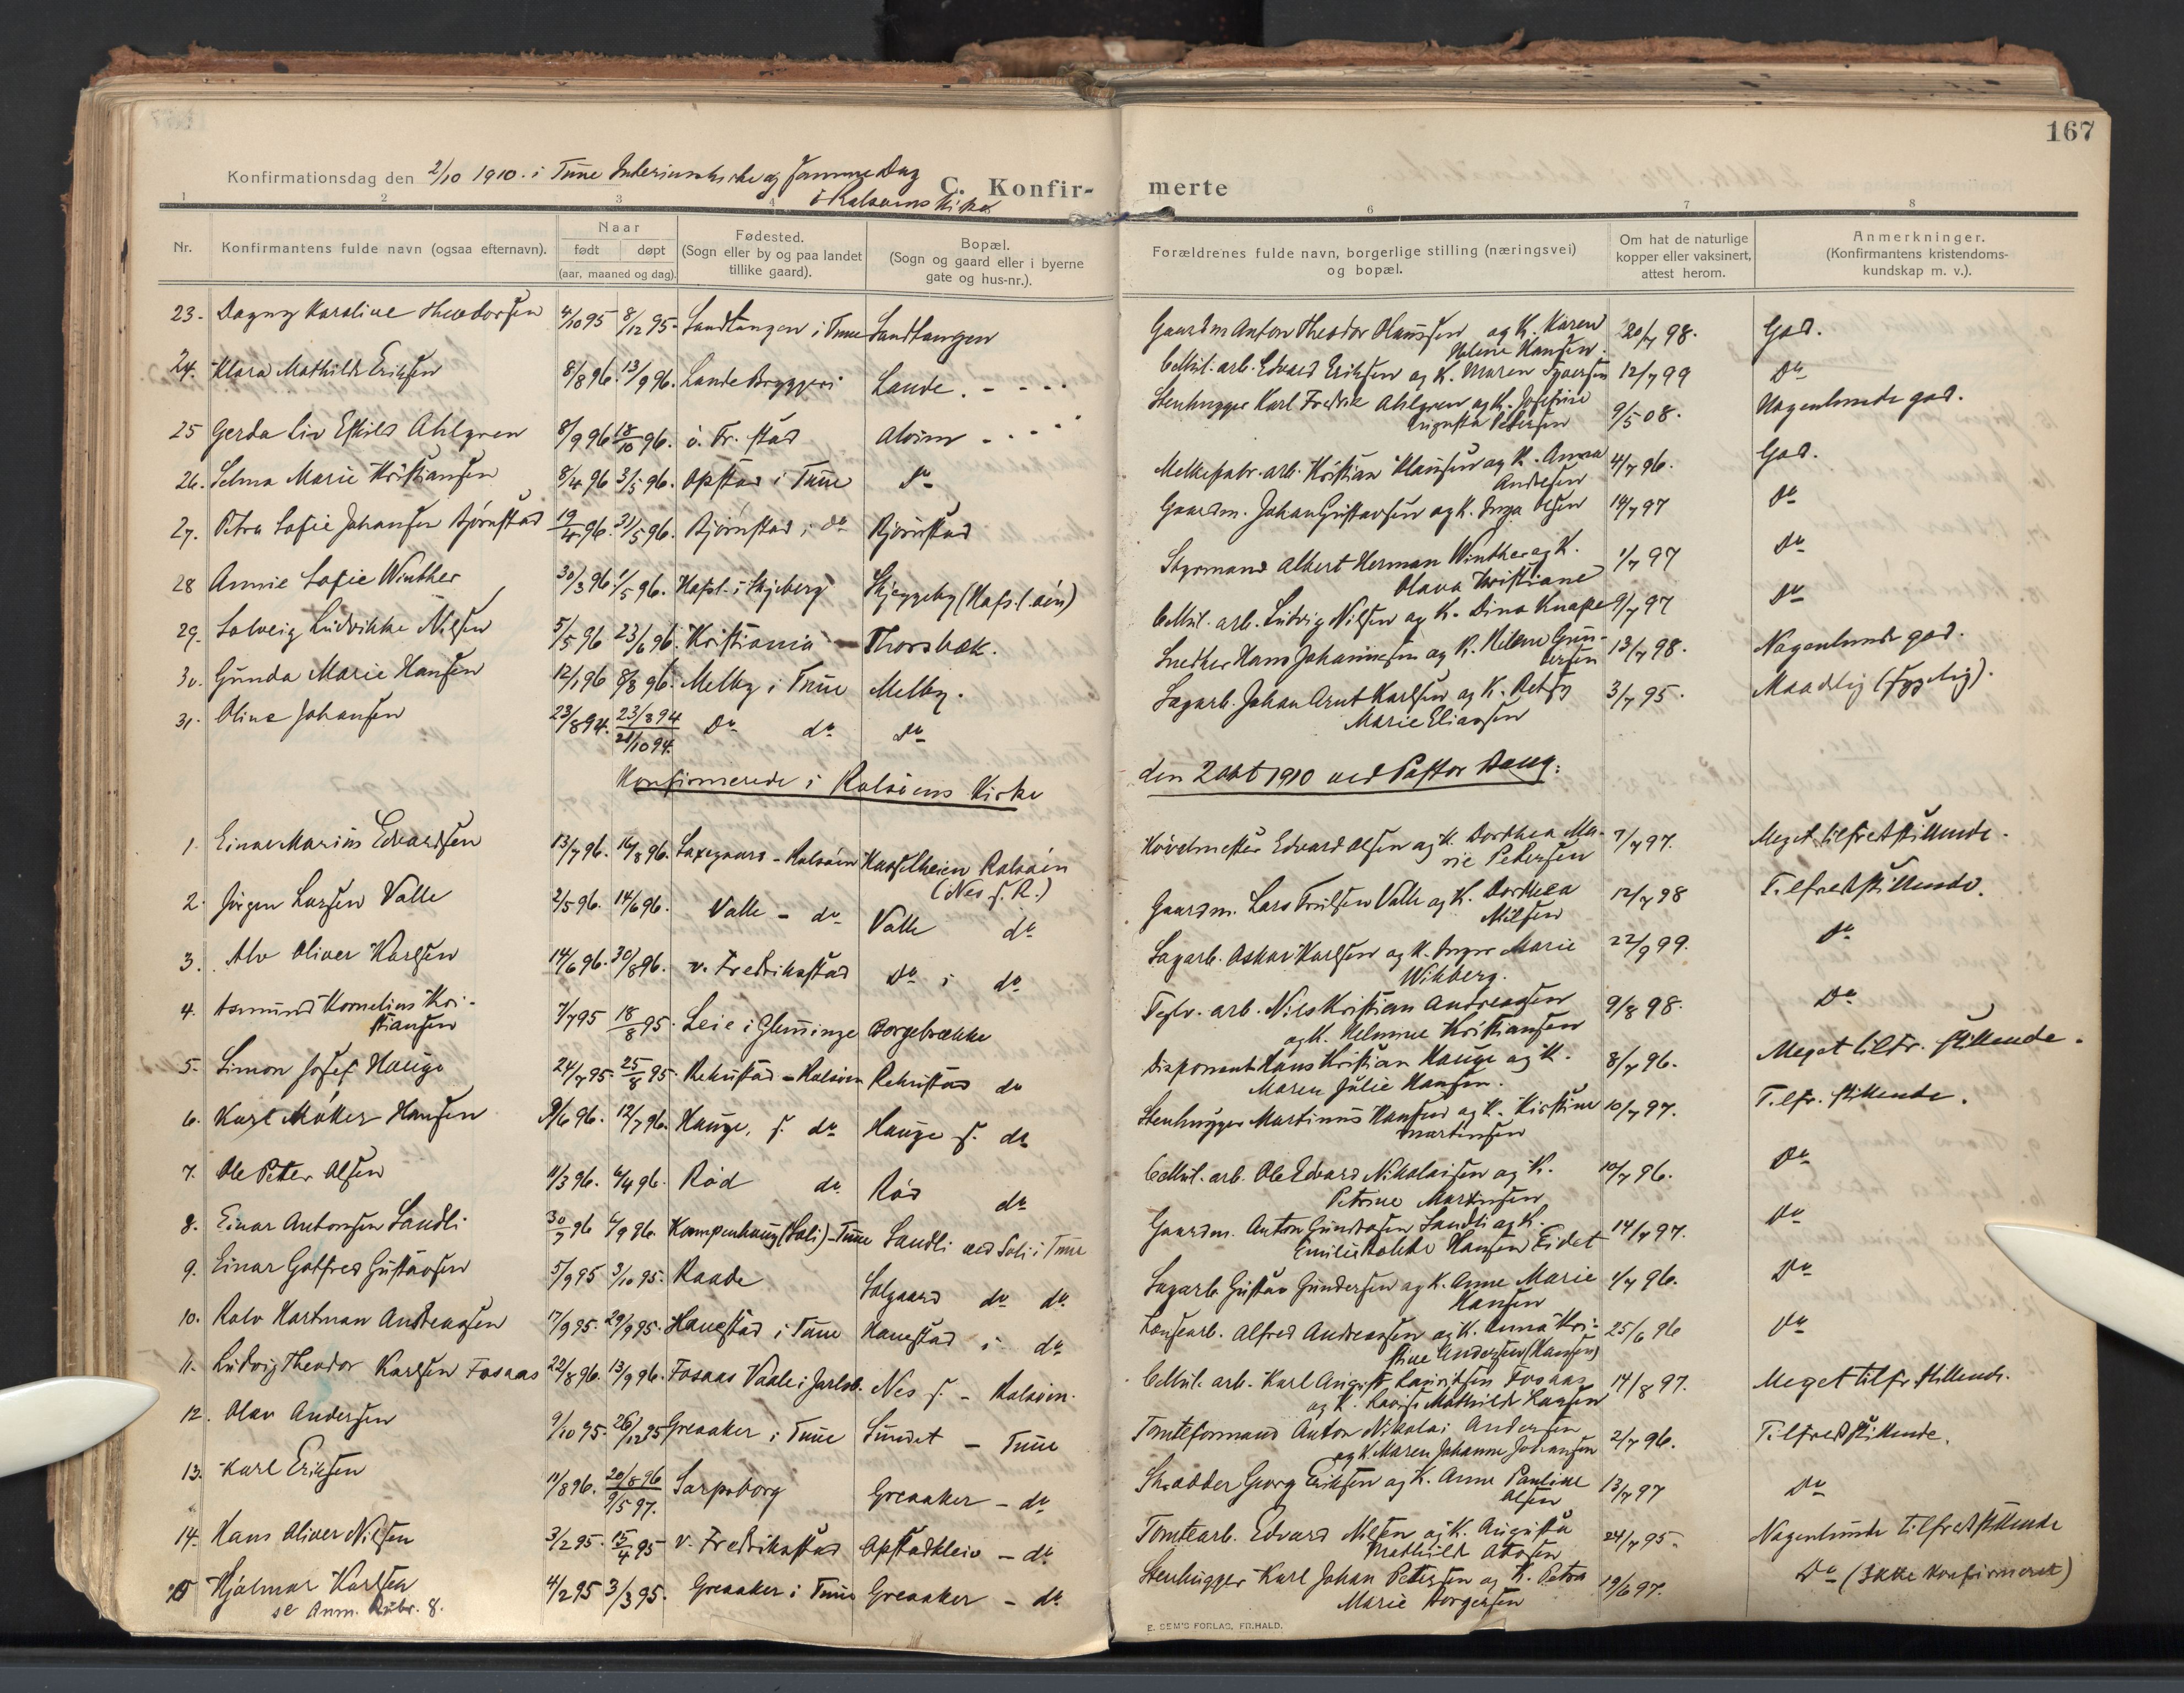 167
Konfirmationsdag den 2/10 1910. i Tune Interimskirke og samme Dag
i Rolsøens Kirke
C. Konfir-
merte
1 2 3 4 6 7 8
Nr. Konfirmantens fulde navn (ogsaa efternavn).
Naar
født døpt
(aar, maaned og dag).
Fødested.
(Sogn eller by og paa landet
tillike gaard).
Bopæl.
(Sogn og gaard eller i byerne
gate og hus-nr.).
Forældrenes fulde navn, borgerlige stilling (næringsvei)
og bopæl.
Om hat de naturlige
kopper eller vaksinert,
attest herom.
Anmerkninger.
(Konfirmantens kristendoms-
kundskap m. v.).
23. Dagny Karoline Theodorsen 4/10 95 8/12 95. Sandtangen i Tune Sandtangen Gaardm Anton Theodor Olaussen og K. Karen 20/7 98. God.
Helene Hansen.
24. Klara Mathilde Eriksen 8/8 96. 13/9 96. Lande Bryggeri Lande. - - - Cellul. arb. Edvard Eriksen og K. Maren Syversen 12/7 99 Do
25 Gerda Liv Eskild Ahlgren 8/9 96 18/10 96. ö. Fr. stad Alvim - - - Stenhugger Karl Fredrik Ahlgren og K. Josefine 9/5 08. Nogenlunde god.
Augusta Petersen
26. Selma Marie Kristiansen 8/4 96 3/5 96. Opstad i Tune Do Melkefabr. arb. Kristian Klausen og K. Anna 4/7 96. God.
Andresen
27. Petra Sofie Johansen Bjørnstad 19/4 96. 31/5 96. Bjørnstad i do Bjørnstad Gaardm. Johan Gustavsen og K. Inga Olsen 14/7 97 Do
28 Annie Sofie Winther 30/3 96 1/5 96. Hafsl. i Skjeberg Skjeggeby (Hafsl. øen) Styrmand Albert Herman Winther og K. 1/7 97 Do
Olava Kristiane
29. Solveig Ludvikke Nilsen 5/5 96 23/6 96. Kristiania Thorsbæk. Cellul. arb. Ludvig Nilsen og K. Dina Knape 9/7 97 Do
30. Gunda Marie Hansen 12/1 96 8/3 96. Melby i Tune Melby. Snedker Hans Johannesen og K. Helene Gun- 13/7 98. Nogenlunde god.
dersen
31. Oline Johansen 23/8 94. 23/8 94 Do do Do Sagarb. Johan Arnt Karlsen og K. Betsy 3/7 95. Maadelig (sygelig).
21/10 94. Marie Eliassen
Konfirmerede i Rolsøens Kirke den 2 okt 1910 ved Pastor Haug:
1. Einar Marius Edvardsen 13/7 96. 16/8 96. Laxegaard - Rolsøen Hasselheien Rolsøen Høvelmester Edvard Olsen og K. Dorthea Ma- 7/7 97. Meget tilfredsstillende.
(Nes s. R.) rie Petersen
2. Jørgen Larsen Valle 2/5 96. 14/6 96. Valle - do Valle do Gaardm. Lars Trulsen Valle og K. Dorthea 12/7 98 Tilfredsstillende.
Nilsen
3. Alv Oliver Karlsen 14/6 96. 30/8 96. v. Fredrikstad Do i do Sagarb. Oskar Karlsen og K. Inger Marie 22/9 99. Do
Wikberg.
4. Asmund Kornelius Kri- 7/7 95 18/8 95. Leie i Glemminge Borgebrække Teglv. arb. Nils Kristian Andreassen 9/8 98. Do
stiansen og K. Helmine Kristiansen
5. Simon Josef Hauge 24/7 95. 25/8 95. Rekustad - Rolsøen Rekustad do Disponent Hans Kristian Hauge og K. 8/7 96. Meget tilfr. stillende.
Maren Julie Hansen.
6. Karl Møller Hansen 9/6 96. 12/7 96. Hauge, s. do Hauge s. do Stenhugger Martinus Hansen og K. Kirstine 10/7 97. Tilfr. stillende.
Martinsen
7. Ole Petter Olsen 11/3 96. 6/4 96. Rød do. Rød do Cellul. arb. Ole Edvard Nikolaisen og K. 10/7 96. Do
Petrine Martinsen
8. Einar Antonsen Sandli 30/7 96 6/9 96. Kampenhaug (Soli) - Tune Sandli ved Soli i Tune Gaardm. Anton Gundersen Sandli og K. 14/7 97. Do
Emilie Hansen Eidet
9. Einar Gotfred Gustavsen 5/9 95 3/10 95. Raade Solgaard do do. Sagarb. Gustav Gundersen og K. Anne Marie 1/7 96. Do
Hansen
10. Rolv Hartman Andreassen 17/9 95. 29/9 95. Hanestad i Tune Hanestad i do Konsearb. Alfred Andreassen og K. Anna Kri- 25/6 96 Do
stine Andersen (Hansen)
11. Ludvig Theodor Karlsen Fosaas 22/8 96. 13/9 96. Fosaas Vaale i Jarlsb. Nes s. - Rolsøen. Cellul. arb. Karl August Lauritsen Fosaas 14/8 97. Meget tilfr. stillende.
og K. Lovise Mathilde Larsen
12. Olav Andersen 9/10 95. 26/12 95 Greaaker i Tune Sundet - Tune Tomteformand Anton Nikolai Andersen 2/7 96. Tilfredsstillende.
og K. Maren Johanne Johansen
13. Karl Eriksen 11/8 96. 20/8 96 Sarpsborg Greaaker - do Skrædder Georg Eriksen og K. Anne Pauline 13/7 97 Do
9/5 97. Olsen
14. Hans Oliver Nilsen 3/2 95. 15/4 95 v. Fredrikstad Opstadkleiv - do Tomtearb. Edvard Nilsen og K. Augusta 24/7 95. Nogenlunde tilfredsstillende
Mathilde
15 Hjalmar Karlsen 4/2 95 3/3 95. Greaaker i Tune Greaaker - do. Stenhugger Karl Johan Petersen og K. Petra 19/6 97. Do (Ikke konfirmeret)
se Anm. Rubr. 8. Marie Borgersen
E. SEM'S FORLAG, FR.HALD.